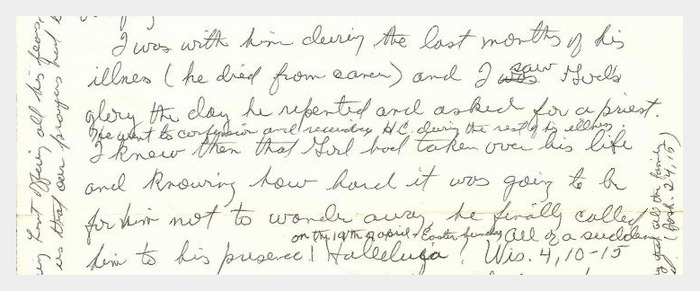 I was with him during the last months of his
illness (he died from cancer) and I saw God's
glory the day he repented and asked for a priest.
He went to confession and received H.C. during the rest of his illness.
I knew then that God had taken over his life
and knowing how hard it was going to be
for him not to wonder away he finally called
on the 19th of April - Easter Sunday All of a sudden
him to his presence! Halleluya! Wis. 4, 10-15
all his fears,
us that our prayers had
that all the family
(Josh. 24, 15)